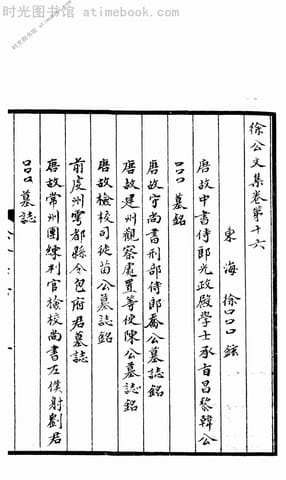 时光图书馆 - atimebook.com
徐公文集卷第十六
東海徐口口口鉉
唐故中書侍郎光政殿學士承旨昌黎韓公
口口口墓銘
唐故守尚書刑部侍郎喬公墓誌銘
唐故建州觀察處置等使陳公墓誌銘
唐故檢校司徒苗公墓誌銘
前虔州雩都縣令包府君墓誌
唐故常州團練判官檢校尚書左僕射劉君
口口口墓誌